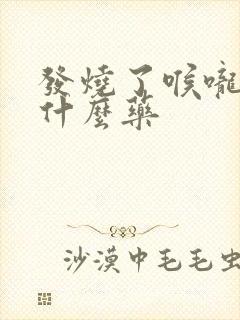 發燒了喉嚨
什麼藥
沙漠中毛毛虫